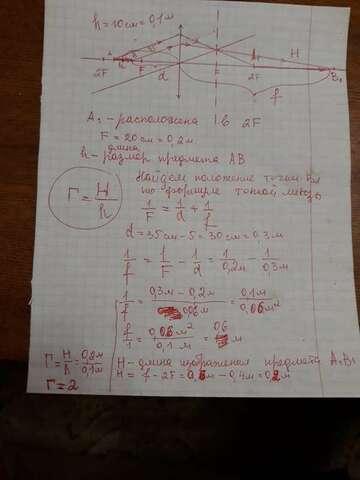 h = 10 см = 0,1 м
2F F d 2F H B₁
f
A₁ - расположена в 2F
F = 20 см = 0,2 м
длина
h - размер предмета AB
Г = H/h
Найдем положение точки B₁
по формуле тонкой линзы
1/F = 1/d + 1/f
d = 35 см - 5 = 30 см = 0,3 м
1/f = 1/F - 1/d = 1/0,2м - 1/0,3м
1/f = 0,3м - 0,2м / 0,06м = 0,1м / 0,06м²
f/1 = 0,06м² / 0,1м = 0,6 м
Г = H/h = 0,2м / 0,1м
Г = 2
H - длина изображения предмета A₁B₁
H = f - 2F = 0,6м - 0,4м = 0,2м